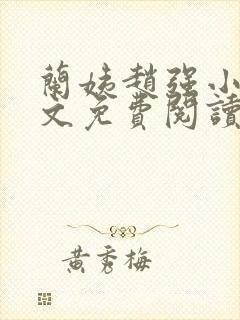 蘭姨趙强小
文免費閱讀
黃秀梅